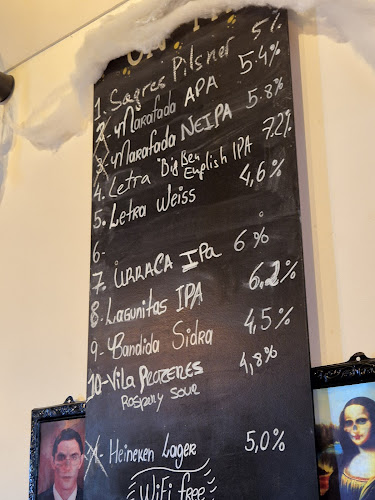 ON TAP
1. Sagres Pilsner 5%
2. Marafada APA 5.4%
3. Marafada NEIPA 5.8%
4. Letra Big Ben English IPA 7.2%
5. Letra Weiss 4,6%
6-
7. URRACA IPa 6%
8- Lagunitas IPA 6,2%
9- Bandida Sidra 4,5%
10- Vila PRAZERES 4,8%
Raspberry sour
X- Heineken Lager 5,0%
WiFi free